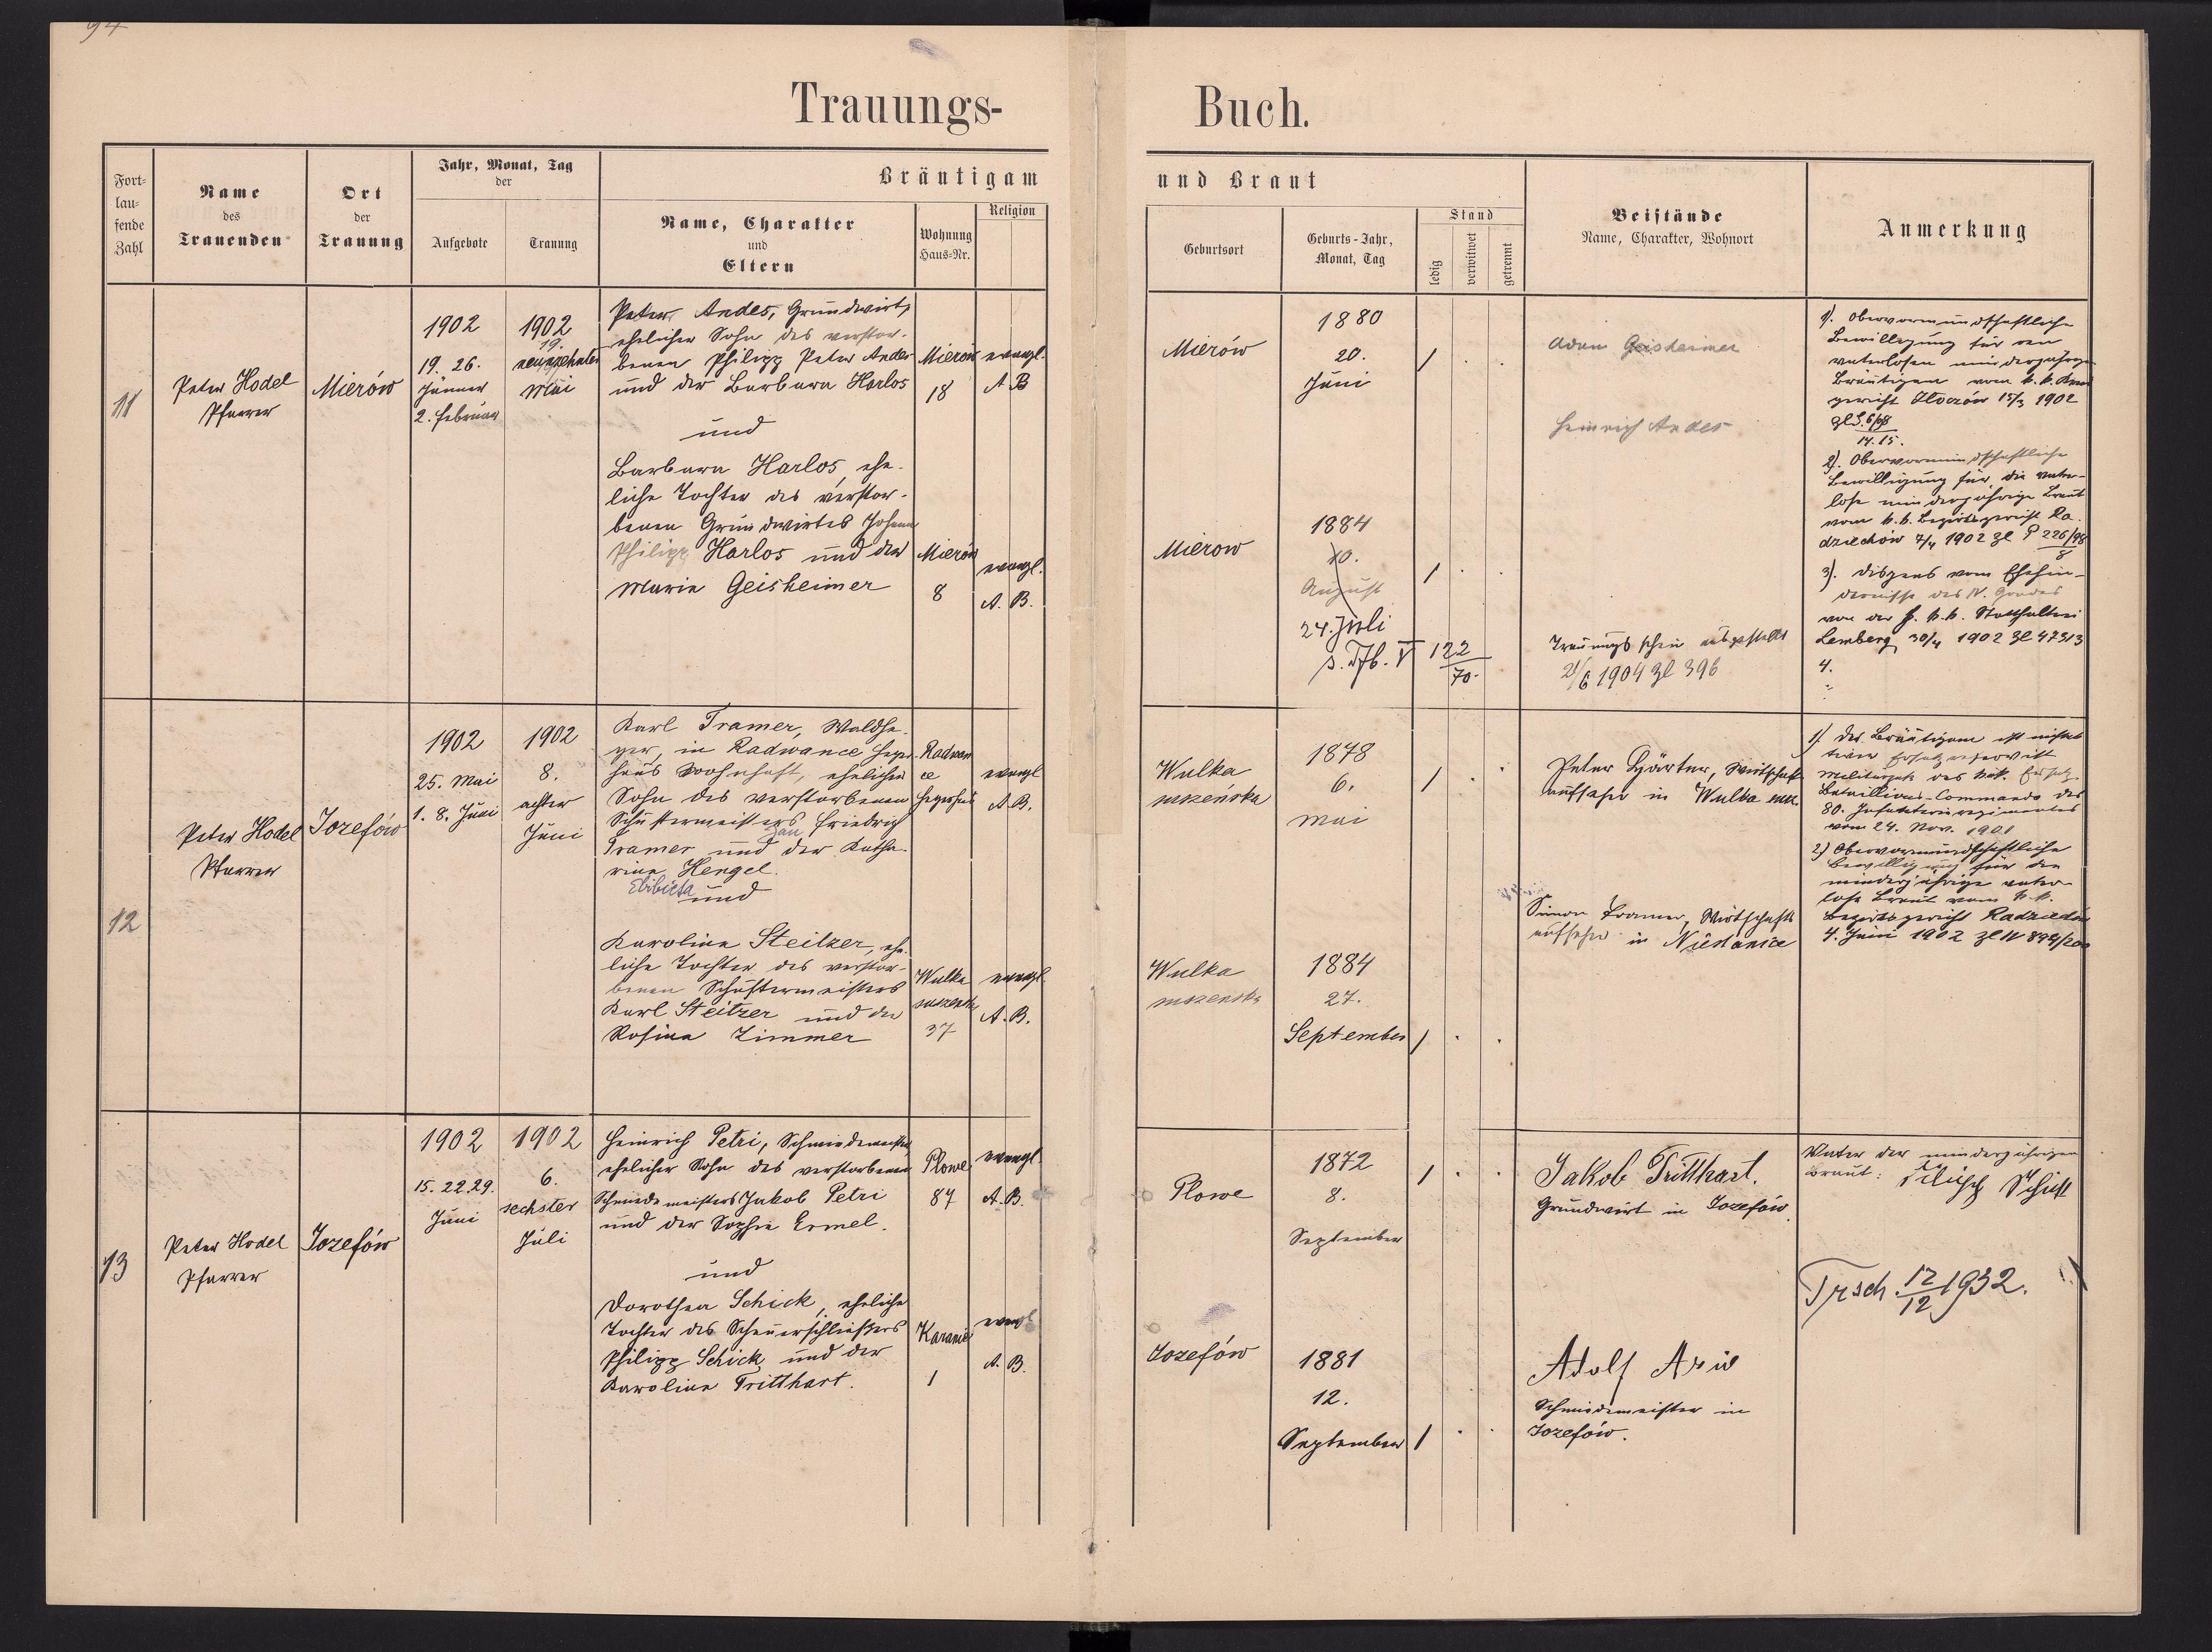 94
Trauungs-
Buch.
Fort-
lau-
fende
Zahl
Name
des
Trauenden
Ort
der
Trauung
Jahr, Monat, Tag
der
Aufgebote
Trauung
Bräutigam
Name, Charakter
und
Eltern
Wohnung
Haus-Nr.
Religion
und Braut
Geburtsort
Geburts-Jahr,
Monat, Tag
Stand
ledig
verwitwet
getrennt
Beistände
Name, Charakter, Wohnort
Anmerkung
11
Peter Hodel
Pfarrer
Mierów
1902
19. 26.
Jänner
2. Februar
1902
19.
neunzehnter
Mai
Peter Andes, Grundwirt,
ehelicher Sohn des verstor-
benen Philipp Peter Andes
und der Barbara Harlos
Mierów
18
evangl.
A B
und
Barbara Harlos, ehe-
liche Tochter des verstor-
benen Grundwirtes Johann
Philipp Harlos und der
Maria Geisheimer
Mierów
8
evangl.
A. B.
Mierów
1880
20.
Juni
Mierow
1884
10.
August
24. Juli
s. Tfb. V 122
70.
Adam Geisheimer
Heinrich Andes
Trauungsschein ausgestellt
21/6 1904 Zl 396
1). Obervormundschaftliche
Bewilligung für den
vaterlosen minderjährigen
Bräutigam vom k. k.
gericht Złoczów 15/3 1902
14. 15.
2). Obervormundschaftliche
Bewilligung für die vater-
lose minderjährige Braut
vom k. k. Bezirksgericht Ra-
dziechów 7/4 1902 Zl P 226/98
8
3). Dispens vom Ehehin-
dernisse des IV. Grades
von der h. k. k. Statthalterei
Lemberg 30/4 1902 Zl 47313
4.
12
Peter Hodel
Pfarrer
Jozefów
1902
25. Mai
1. 8. Juni
1902
8.
achter
Juni
Karl Tramer, Waldhe-
ger, in Radwance Heger-
haus wohnhaft, ehelicher
Sohn des verstorbenen
Schustermeisters Friedrich
Jan
Tramer und der Katha-
rina Hengel.
Elżbieta
und
Radwan
ce
Hegerhaus
evangl
A. B.
Karolina Steitzer, ehe-
liche Tochter des verstor-
benen Schustermeisters
Karl Steitzer und der
Rosina Zimmer
Wulka
mazenska
37
evangl.
A. B.
Wulka
mszeńska
1878
6.
Mai
Wulka
mszenska
1884
27.
September
Peter Gärtner, Wirtschafts
aufseher in Wulka
Simon Tramer, Wirtschafts
aufseher in
1). Der Bräutigam ist nichtak-
tiver Ersatzreservist
Militärpaß des k.u.k. Ersatz
Bataillions-Commando des
80. Infanterieregimentes
vom 24. Nov. 1901
2) Obervormundschaftliche
Bewilligung für die
minderjährige vater-
lose Braut vom k. k.
Bezirksgericht Radziechów
4. Juni 1902
13
Peter Hodel
Pfarrer
Jozefów
1902
15. 22. 29.
Juni
1902
6.
sechster
Juli
Heinrich Petri, Schmiedemeister,
ehelicher Sohn des verstorbenen
Schmiedemeisters Jakob Petri
und der Sophie Ermel.
Plowe
87
evangl.
A. B.
und
Dorothea Schick, eheliche
Tochter des
Philipp Schick und der
Karolina Tritthart.
1
evangl.
A. B.
Plowe
1872
8.
September
Jozefów
1881
12.
September
Jakob Tritthart.
Grundwirt in Jozefów
Adolf
Schmiedemeister in
Jozefów.
Vater der minderjährigen
Braut: Filipp Schick
Trsch. 12/12 1932.